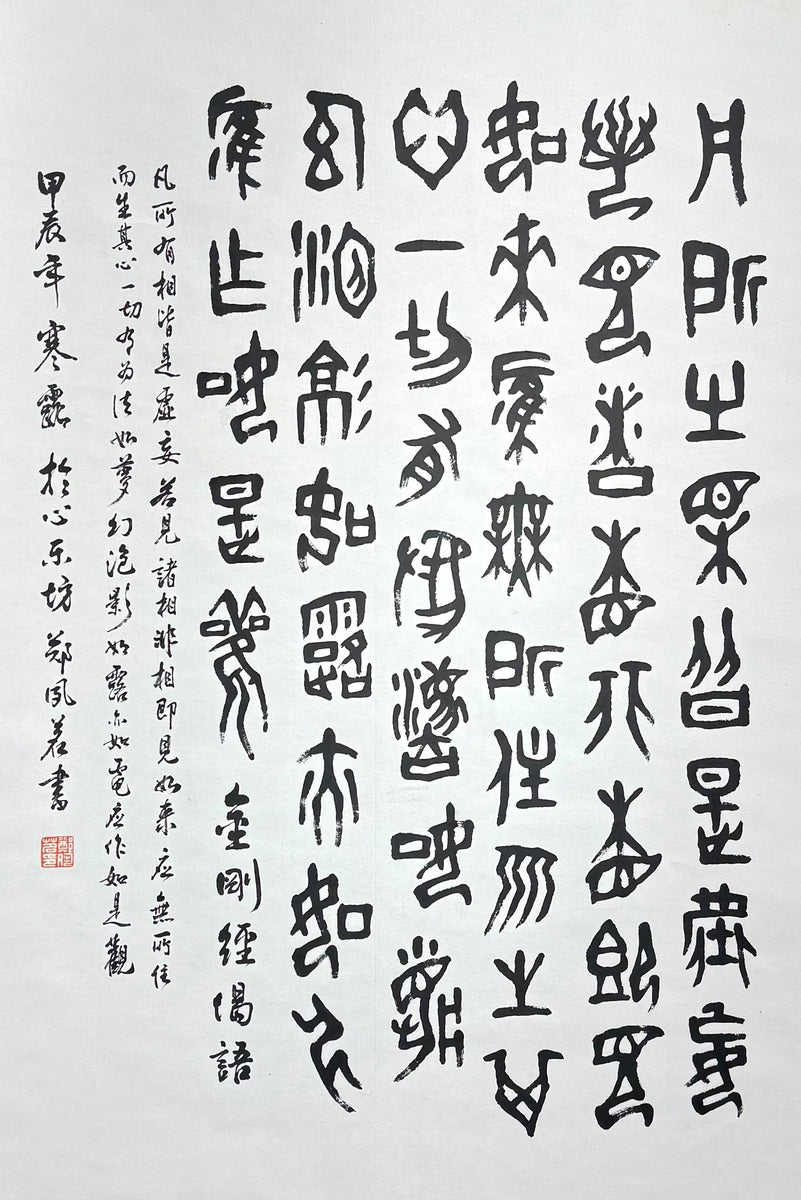 凡所有相皆是虚妄
若見諸相非相即見
如來應無所住而生其
心一切有為法如夢
幻泡影如露亦如电
應作如是觀 金剛經偈語
凡所有相皆是虛妄若見諸相非相即見如来应無所住
而生其心一切有为法如夢幻泡影如露亦如電应作如是觀
甲辰年寒露於心乐坊郑若書